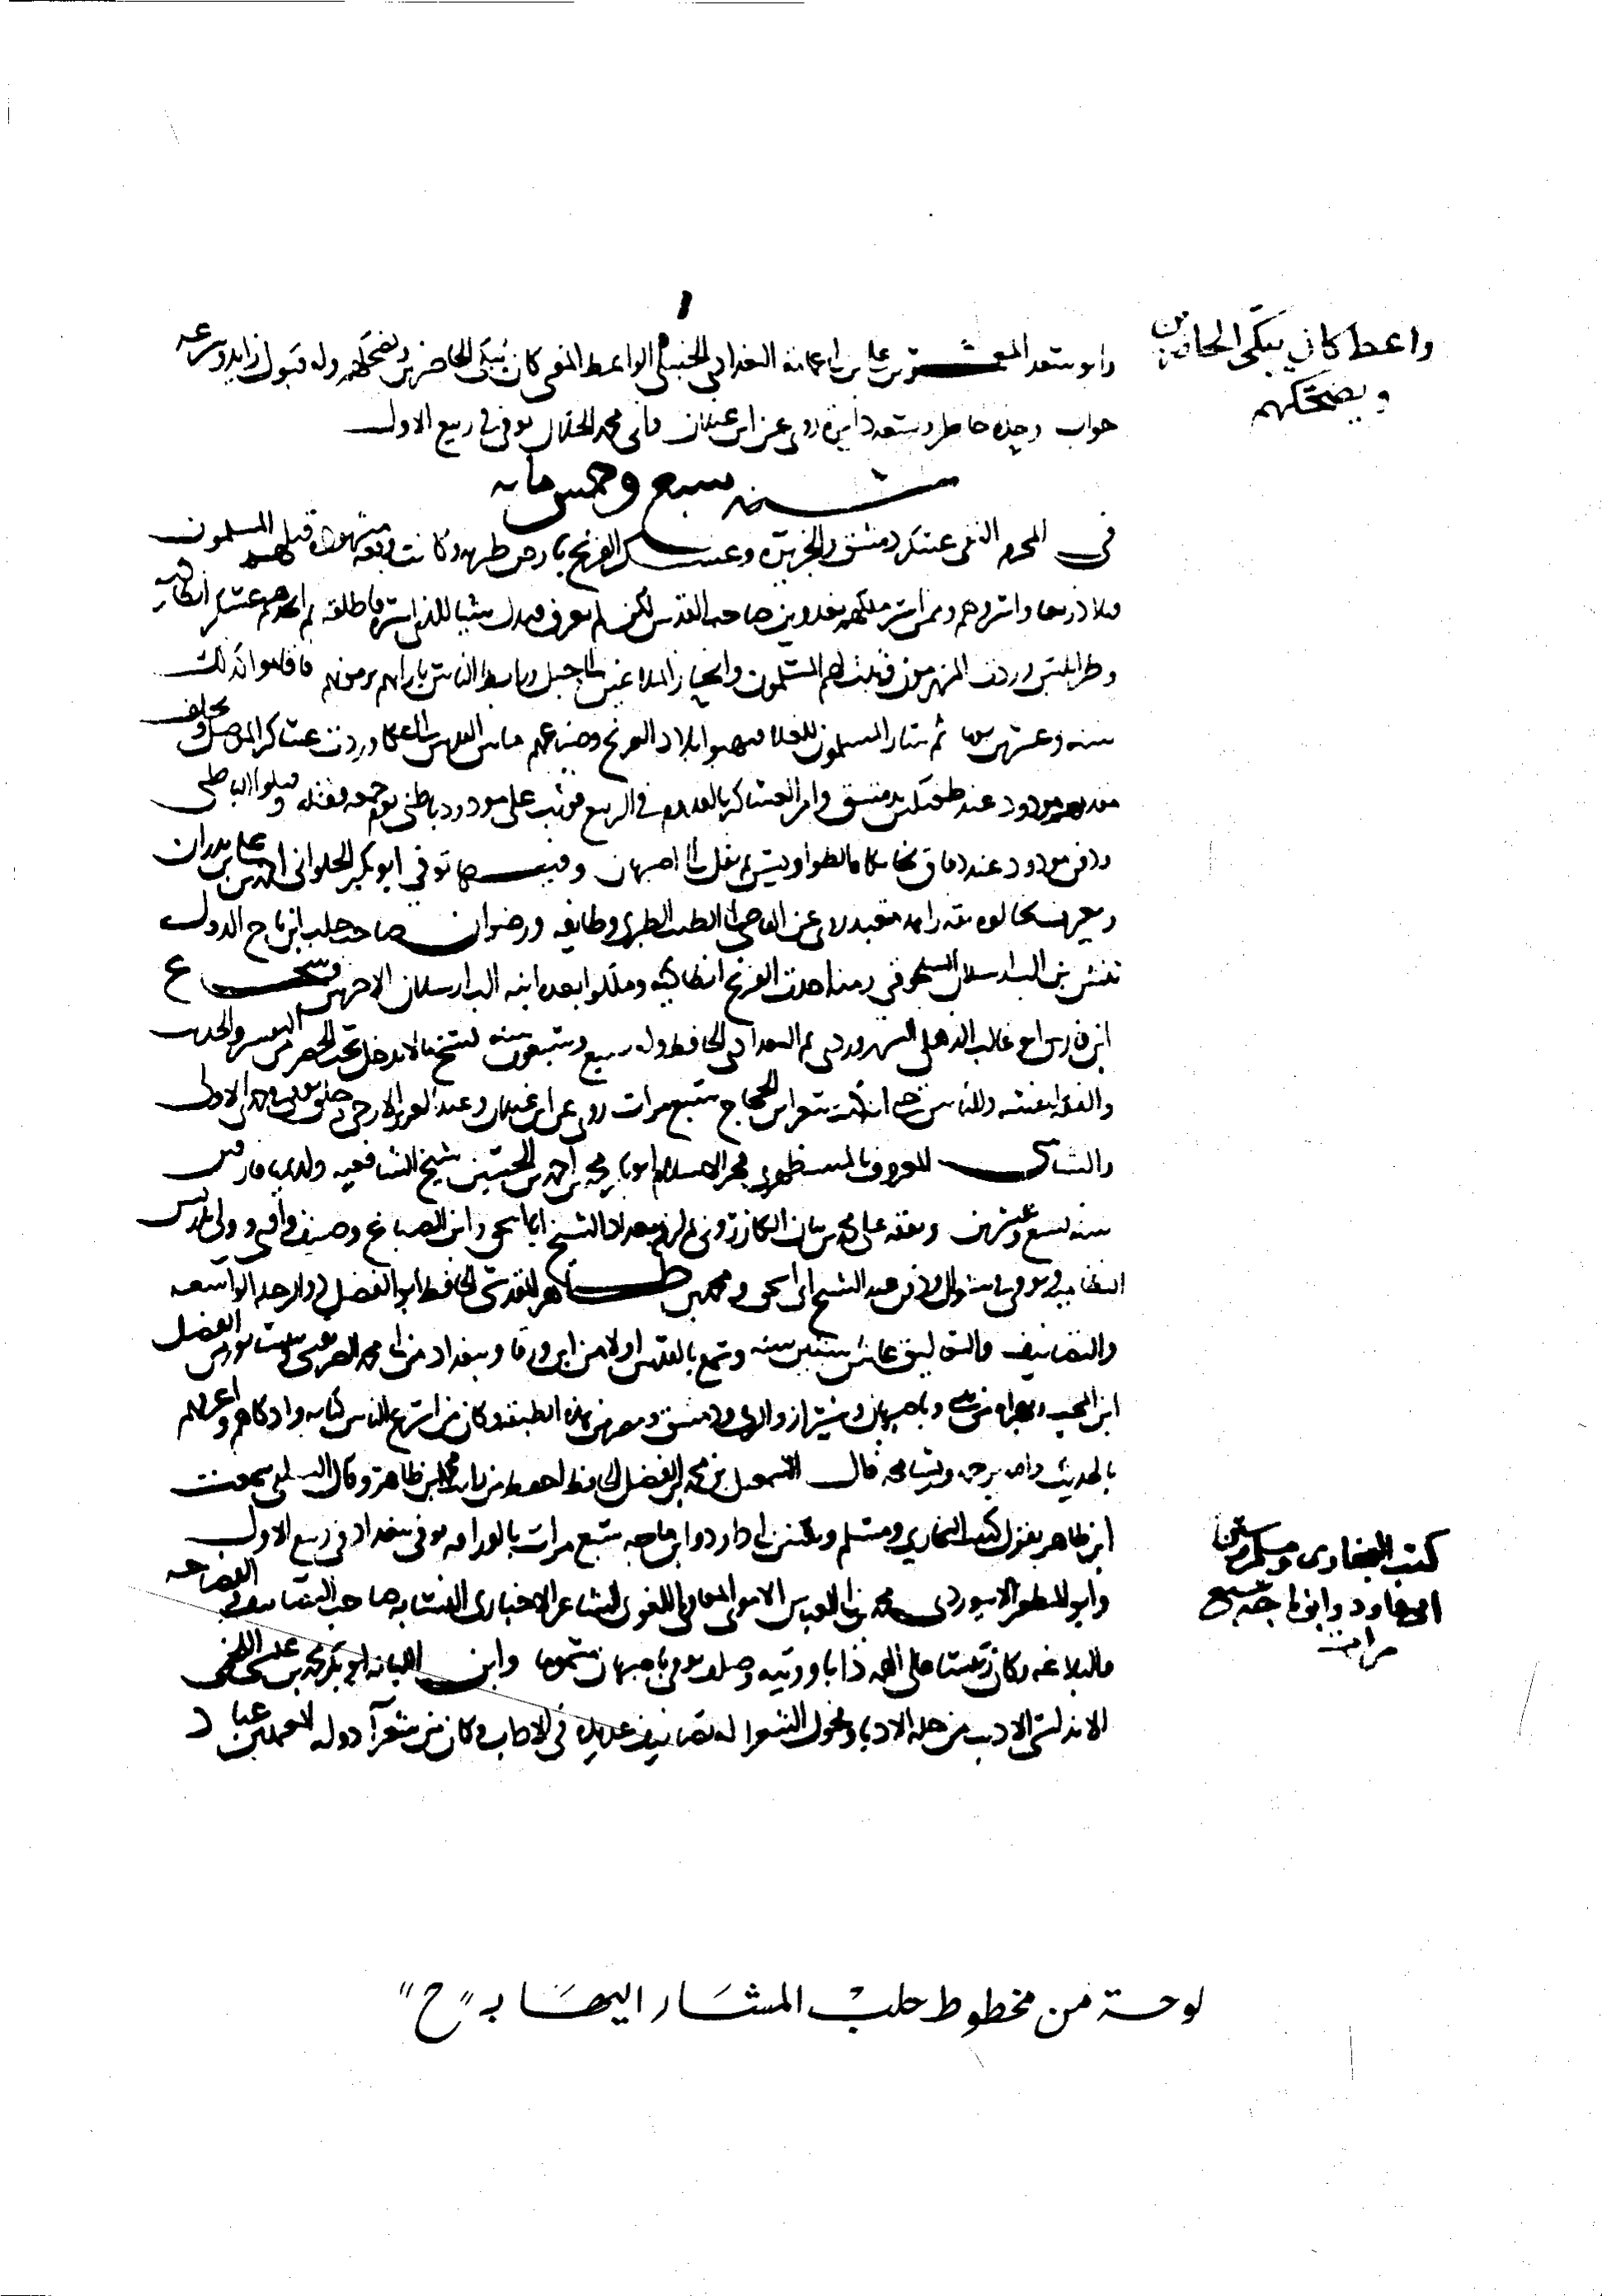 وابو سعد المعمر بن علي بن ابي عمامة البغدادي الحنبلي الواعظ المفتي كان يبكي الحاضرين ويضحكهم وله قبول زايد وسرعة
جواب وحدة خاطر وسعة دايرة روى عن ابن غيلان وابي محمد الخلال توفي في ربيع الاول
سنة سبع وخمس مايه
في المحرم التقى عسكر دمشق والجزيرة وعسكر الفرنج بارض طبرية وكانت وقعة مشهورة قتلهم المسلمون
واسروهم وممن اسر ملكهم بغدوين صاحب القدس لكن لم يعرف فبذل شيا للذي اسره فاطلقه ثم انجدهم عسكر انطاكية
وطرابلس وردت المنهزمين فثبت لهم المسلمون وانحاز الملاعين الى جبل ورابط الناس بازايهم يرمونهم فاقاموا كذلك
ستة وعشرين يوما ثم سار المسلمون للغلا فنهبوا بلاد الفرنج وضياعهم ما بين القدس الى عكا وردت عساكر الموصل وتخلف
مقدمهم مودود عند طغتكين بدمشق وامر العساكر بالقدوم في الربيع فوثب على مودود باطني يوم جمعة فقتله وقتلوا الباطني
ودفن مودود عند دقاق بخانكاه الطواويس ثم نقل الى اصبهان وفيها توفي ابو بكر الحلواني احمد بن علي بن بدران
ويعرف بخالوه ثقة زاهد متعبد روى عن القاضي ابي الطيب الطبري وطايفة ورضوان صاحب حلب ابن تاج الدولة
تتش بن الب ارسلان السلجوقي ومنه اخذت الفرنج انطاكية وملكوا بعده ابنه الب ارسلان الاخرس وشجاع
ابن فارس ابو غالب الذهلي السهروردي ثم البغدادي الحافظ وله سبع وسبعون سنة نسخ ما لا يدخل تحت الحصر من التفسير والحديث
والفقه لنفسه وللناس حتى انه كتب شعر ابن الحجاج سبع مرات روى عن ابن غيلان وعبد العزيز الازجي وخلق توفي في جمادى الاولى
والشاشي المعروف بالمستظهري فخر الاسلام ابو بكر محمد بن احمد بن الحسين شيخ الشافعية ولد بميافارقين
سنة تسع وعشرين وتفقه على محمد بن بيان الكازروني ثم لزم ببغداد الشيخ ابا اسحق وابن الصباغ وصنف وافتى وولي تدريس
النظامية توفي في شوال ودفن عند الشيخ ابي اسحق ومحمد بن طاهر المقدسي الحافظ ابو الفضل ذو الرحلة الواسعة
والتصانيف والتعاليق عاش ستين سنة وسمع بالقدس اولا من ابن ورقا وببغداد من ابي محمد الصريفيني وبنيسابور من الفضل
ابن المحب وبهراة من وباصبهان وشيراز والري ودمشق ومصر من هذه الطبقة وكان من اسرع الناس كتابة واذكاهم واعرفهم
بالحديث والله يرحمه ويسامحه قال اسمعيل بن محمد بن الفضل الحافظ احفظ من رايت محمد بن طاهر وقال السلفي سمعت
ابن طاهر يقول كتبت البخاري ومسلم وسنن ابي داود وابن ماجه سبع مرات بالوراقة توفي ببغداد في ربيع الاول
وابو المظفر الابيوردي محمد بن ابي العباس الاموي المعاوي اللغوي الشاعر الاخباري النسابة صاحب التصانيف والفصاحة
والبلاغة وكان رئيسا عالي الهمة ذا باو وتيه وصلف توفي باصبهان مسموما وابن اللبانة ابو بكر محمد بن عيسى اللخمي
الاندلسي الاديب من جلة الادبا وفحول الشعرا له تصانيف عديدة في الاداب وكان من شعرآ دولة المعتمد بن عباد
واعظ كان يبكي الحاضرين
ويضحكهم
كتب البخاري ومسلم وسنن
ابي داود وابن ماجه سبع
مرات
لوحة من مخطوط حلب المشار اليها بـ "ح"